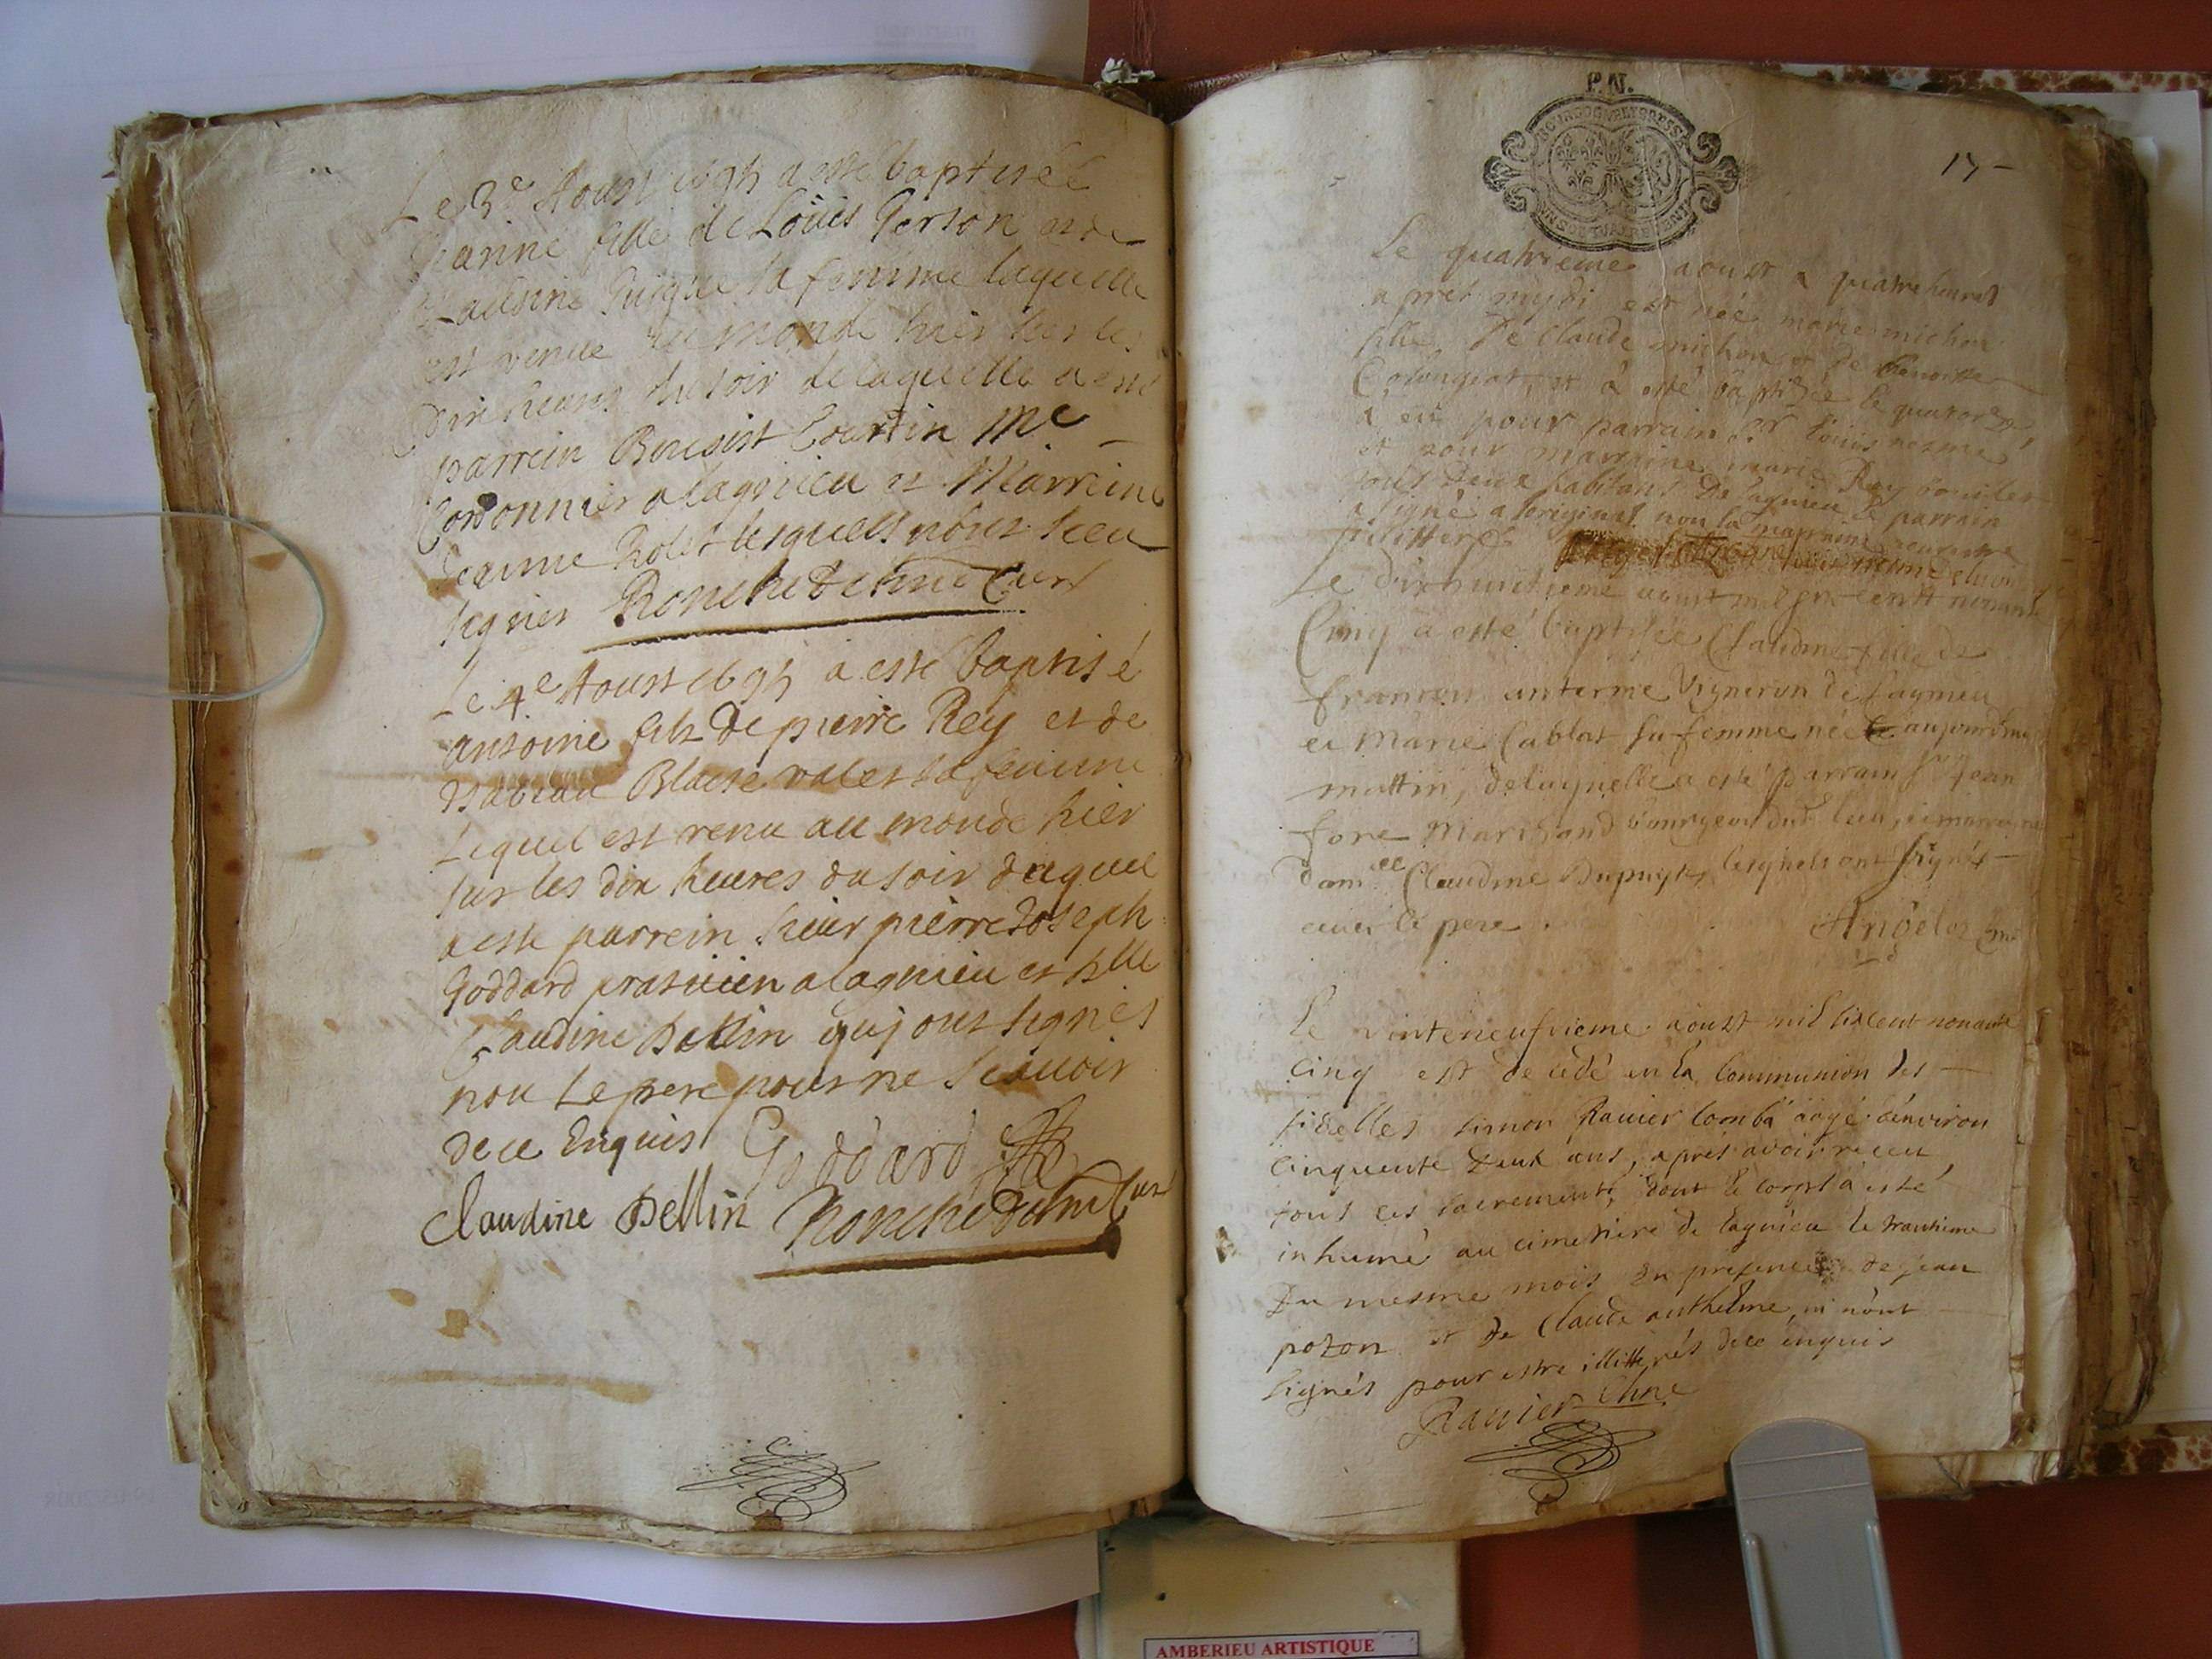 Le 3e Aoust 1695 a esté baptisée
Jeanne fille de Loüis Person et de
Claudine Guigue sa femme laquelle
est venue au monde hier sur les
Dix heures du soir de laquelle a esté
parrein Benoist Courtin Me
Cordonnier a lagnieu et Marreine
Jeanne Rolet lesquels n'ont sceu
signer Ronchedelme Curé
Le 4e Aoust 1695 a esté baptisé
antoine fils de pierre Rey et de
Isabeau Blaise valet sa femme
Lequel est venu au monde hier
sur les dix heures du soir duquel
a esté parrein sieur pierre Joseph
Goddard praticien a lagnieu et dlle
Claudine Dellin quj ont signés
non Le pere pour ne scauoir
de ce Enquis Goddard
Claudine Dellin Curé
P.N.
17
Le quatrieme aoust a quatre heures
apres mydi est née marie michon
fille De claude michon et de benoitte
et à esté baptisée le
a eü pour parrain sr loüis nesme
et pour marraine marie Rey
touts deux habitans De lagnieu le parrain
a signé a l'original non la marraine
illitteré
Le Dixhuitieme aoust mil six cents nonante
Cinq a esté baptisée Claudine fille de
francois anterme Vigneron de Laynieu
et Marie Cablat sa femme née aujourdhuy
mattin, delaquelle a esté parrain Sr Jean
fore Marchand bourgeois dud. lieu, et marraine
dam.elle Claudine Dupuys, lesquels ont signés
auec le pere.
Le vinteneufvieme aoust mil sixcent nonante
cinq est decedé en la Communion des
fidelles simon Rauier Comba aagé d'environ
cinquante Deux ans, aprés avoir receu
tous ces sacrements, dont le corps a esté
inhumé au cimetiere de lagnieu le trantieme
Du mesme mois En presence de jean
pozon et de Claude anthelme, ni n'ont
signés pour estre illittérés de ce enquis
Rauier
AMBERIEU ARTISTIQUE